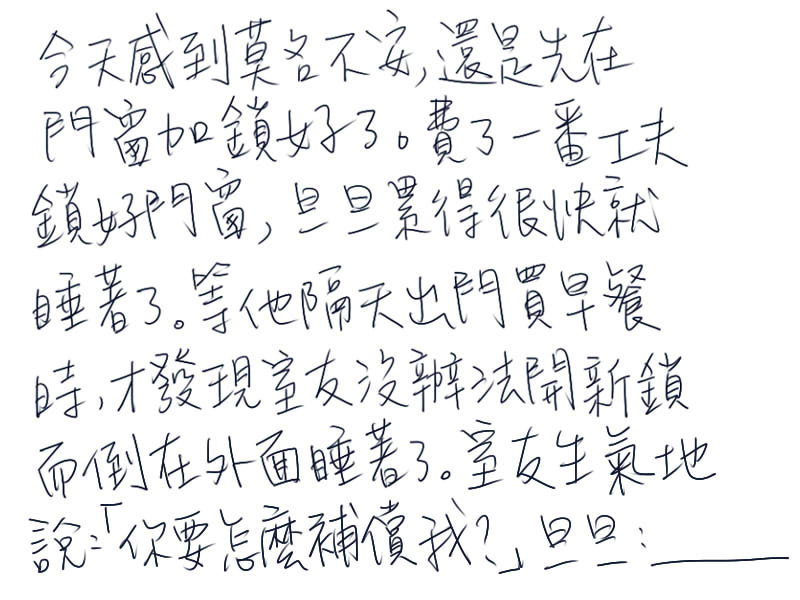 今天感到莫名不安,還是先在
門窗加鎖好了。費了一番工夫
鎖好門窗,旦旦累得很快就
睡著了。等他隔天出門買早餐
時,才發現室友沒辦法開新鎖
而倒在外面睡著了。室友生氣地
說:「你要怎麼補償我?」旦旦:______